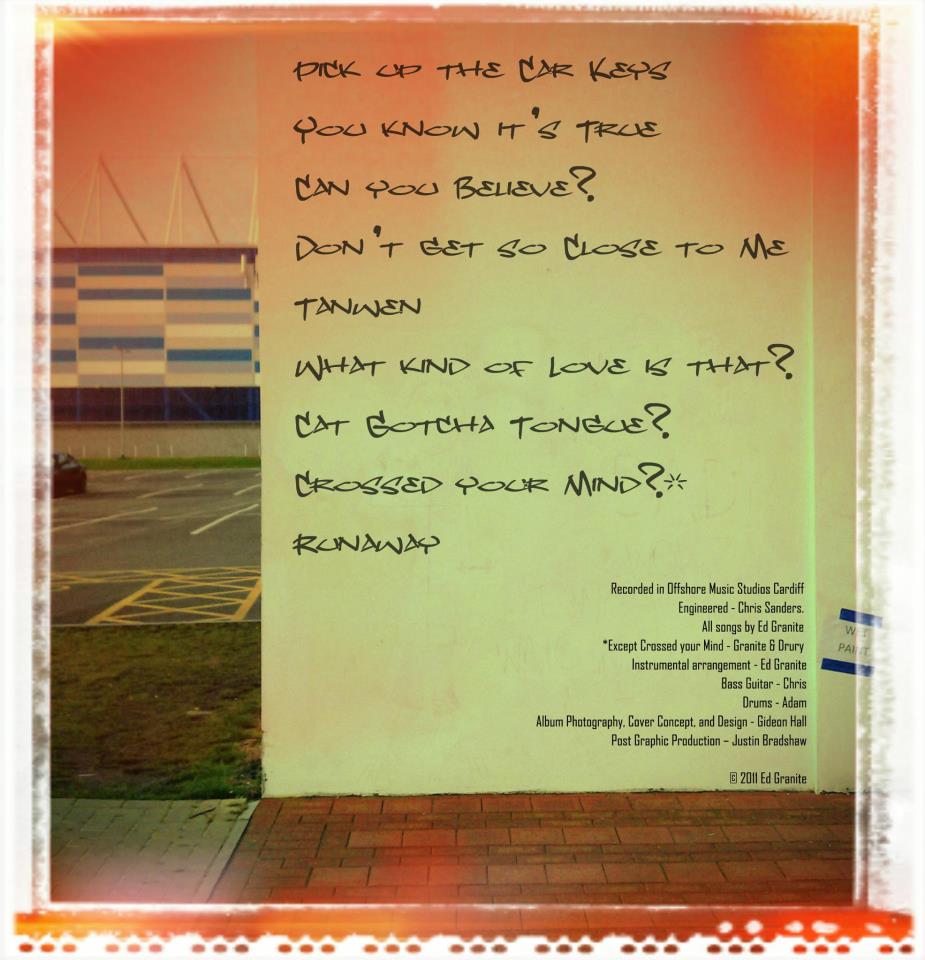 Pick up the Car Keys
You know it's True
Can you Believe?
Don't get so Close to Me
Tanwen
What kind of Love is that?
Cat Gotcha Tongue?
Crossed your Mind?*
Runaway
Recorded in Offshore Music Studios Cardiff
Engineered - Chris Sanders.
All songs by Ed Granite
*Except Crossed your Mind - Granite & Drury
Instrumental arrangement - Ed Granite
Bass Guitar - Chris
Drums - Adam
Album Photography, Cover Concept, and Design - Gideon Hall
Post Graphic Production – Justin Bradshaw
© 2011 Ed Granite
WET
PAINT